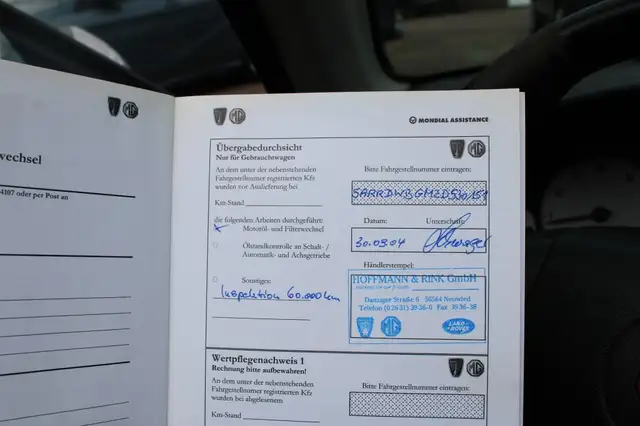 wechsel
4107 oder per Post an
MG
MG
MONDIAL ASSISTANCE
Übergabedurchsicht
Nur für Gebrauchtwagen
An dem unter der nebenstehenden
Fahrgestellnummer registrierten Kfz
wurden vor Auslieferung bei
Km-Stand
die folgenden Arbeiten durchgeführt:
Motoröl- und Filterwechsel
Ölstandkontrolle an Schalt- /
Automatik- und Achsgetriebe
Sonstiges:
Inspektion 60.000 km
MG
Bitte Fahrgestellnummer eintragen:
SARRDWBGMZD530151
Datum:
Unterschrift:
30.09.04
Händlerstempel:
HOFFMANN & RINK GmbH
Danziger Straße 6 56564 Neuwied
Telefon (02631) 3936-0 Fax 3936-38
MG
LAND ROVER
Wertpflegenachweis 1
Rechnung bitte aufbewahren!
An dem unter der nebenstehenden
Fahrgestellnummer registrierten Kfz
wurden bei abgelesenem
Km-Stand
MG
Bitte Fahrgestellnummer eintragen: